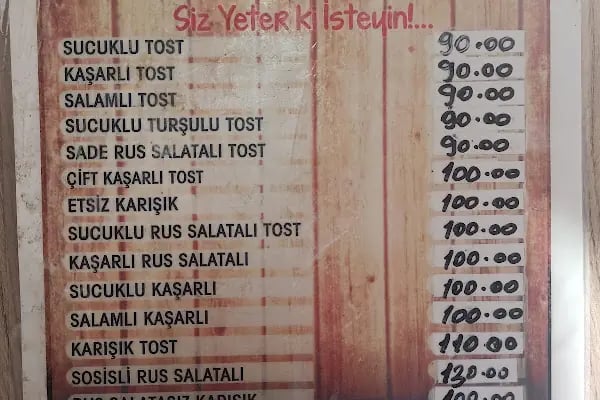 Siz Yeter ki İsteyin!...
SUCUKLU TOST 90.00
KAŞARLI TOST 90.00
SALAMLI TOST 90.00
SUCUKLU TURŞULU TOST 90.00
SADE RUS SALATALI TOST 90.00
ÇİFT KAŞARLI TOST 100.00
ETSİZ KARIŞIK 100.00
SUCUKLU RUS SALATALI TOST 100.00
KAŞARLI RUS SALATALI 100.00
SUCUKLU KAŞARLI 100.00
SALAMLI KAŞARLI 100.00
KARIŞIK TOST 110.00
SOSİSLİ RUS SALATALI 120.00
RUS SALATASIZ KARIŞIK